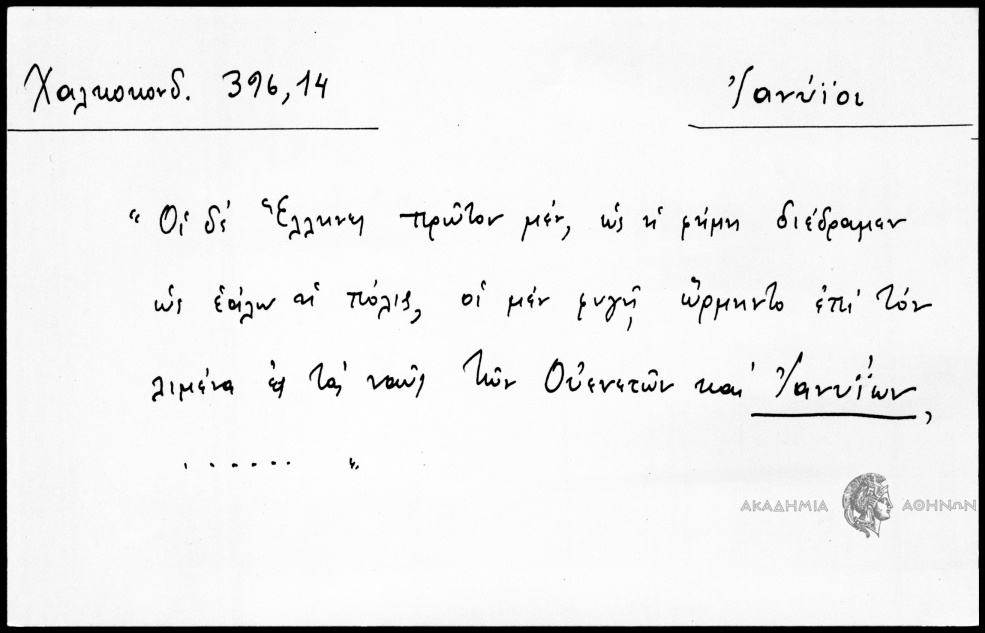 Χαλκοκονδ. 396,14
Ἰανύϊοι
“ Οἱ δέ Ἕλληνες πρῶτον μέν, ὡς ἡ φήμη διέδραμεν
ὡς ἑάλω ἡ πόλις, οἱ μέν φυγῇ ὥρμηντο ἐπί τόν
λιμένα ἐς τάς ναῦς τῶν Οὐενετῶν καί Ἰανυΐων,
. . . . . . . ”.
ΑΚΑΔΗΜΙΑ ΑΘΗΝΩΝ